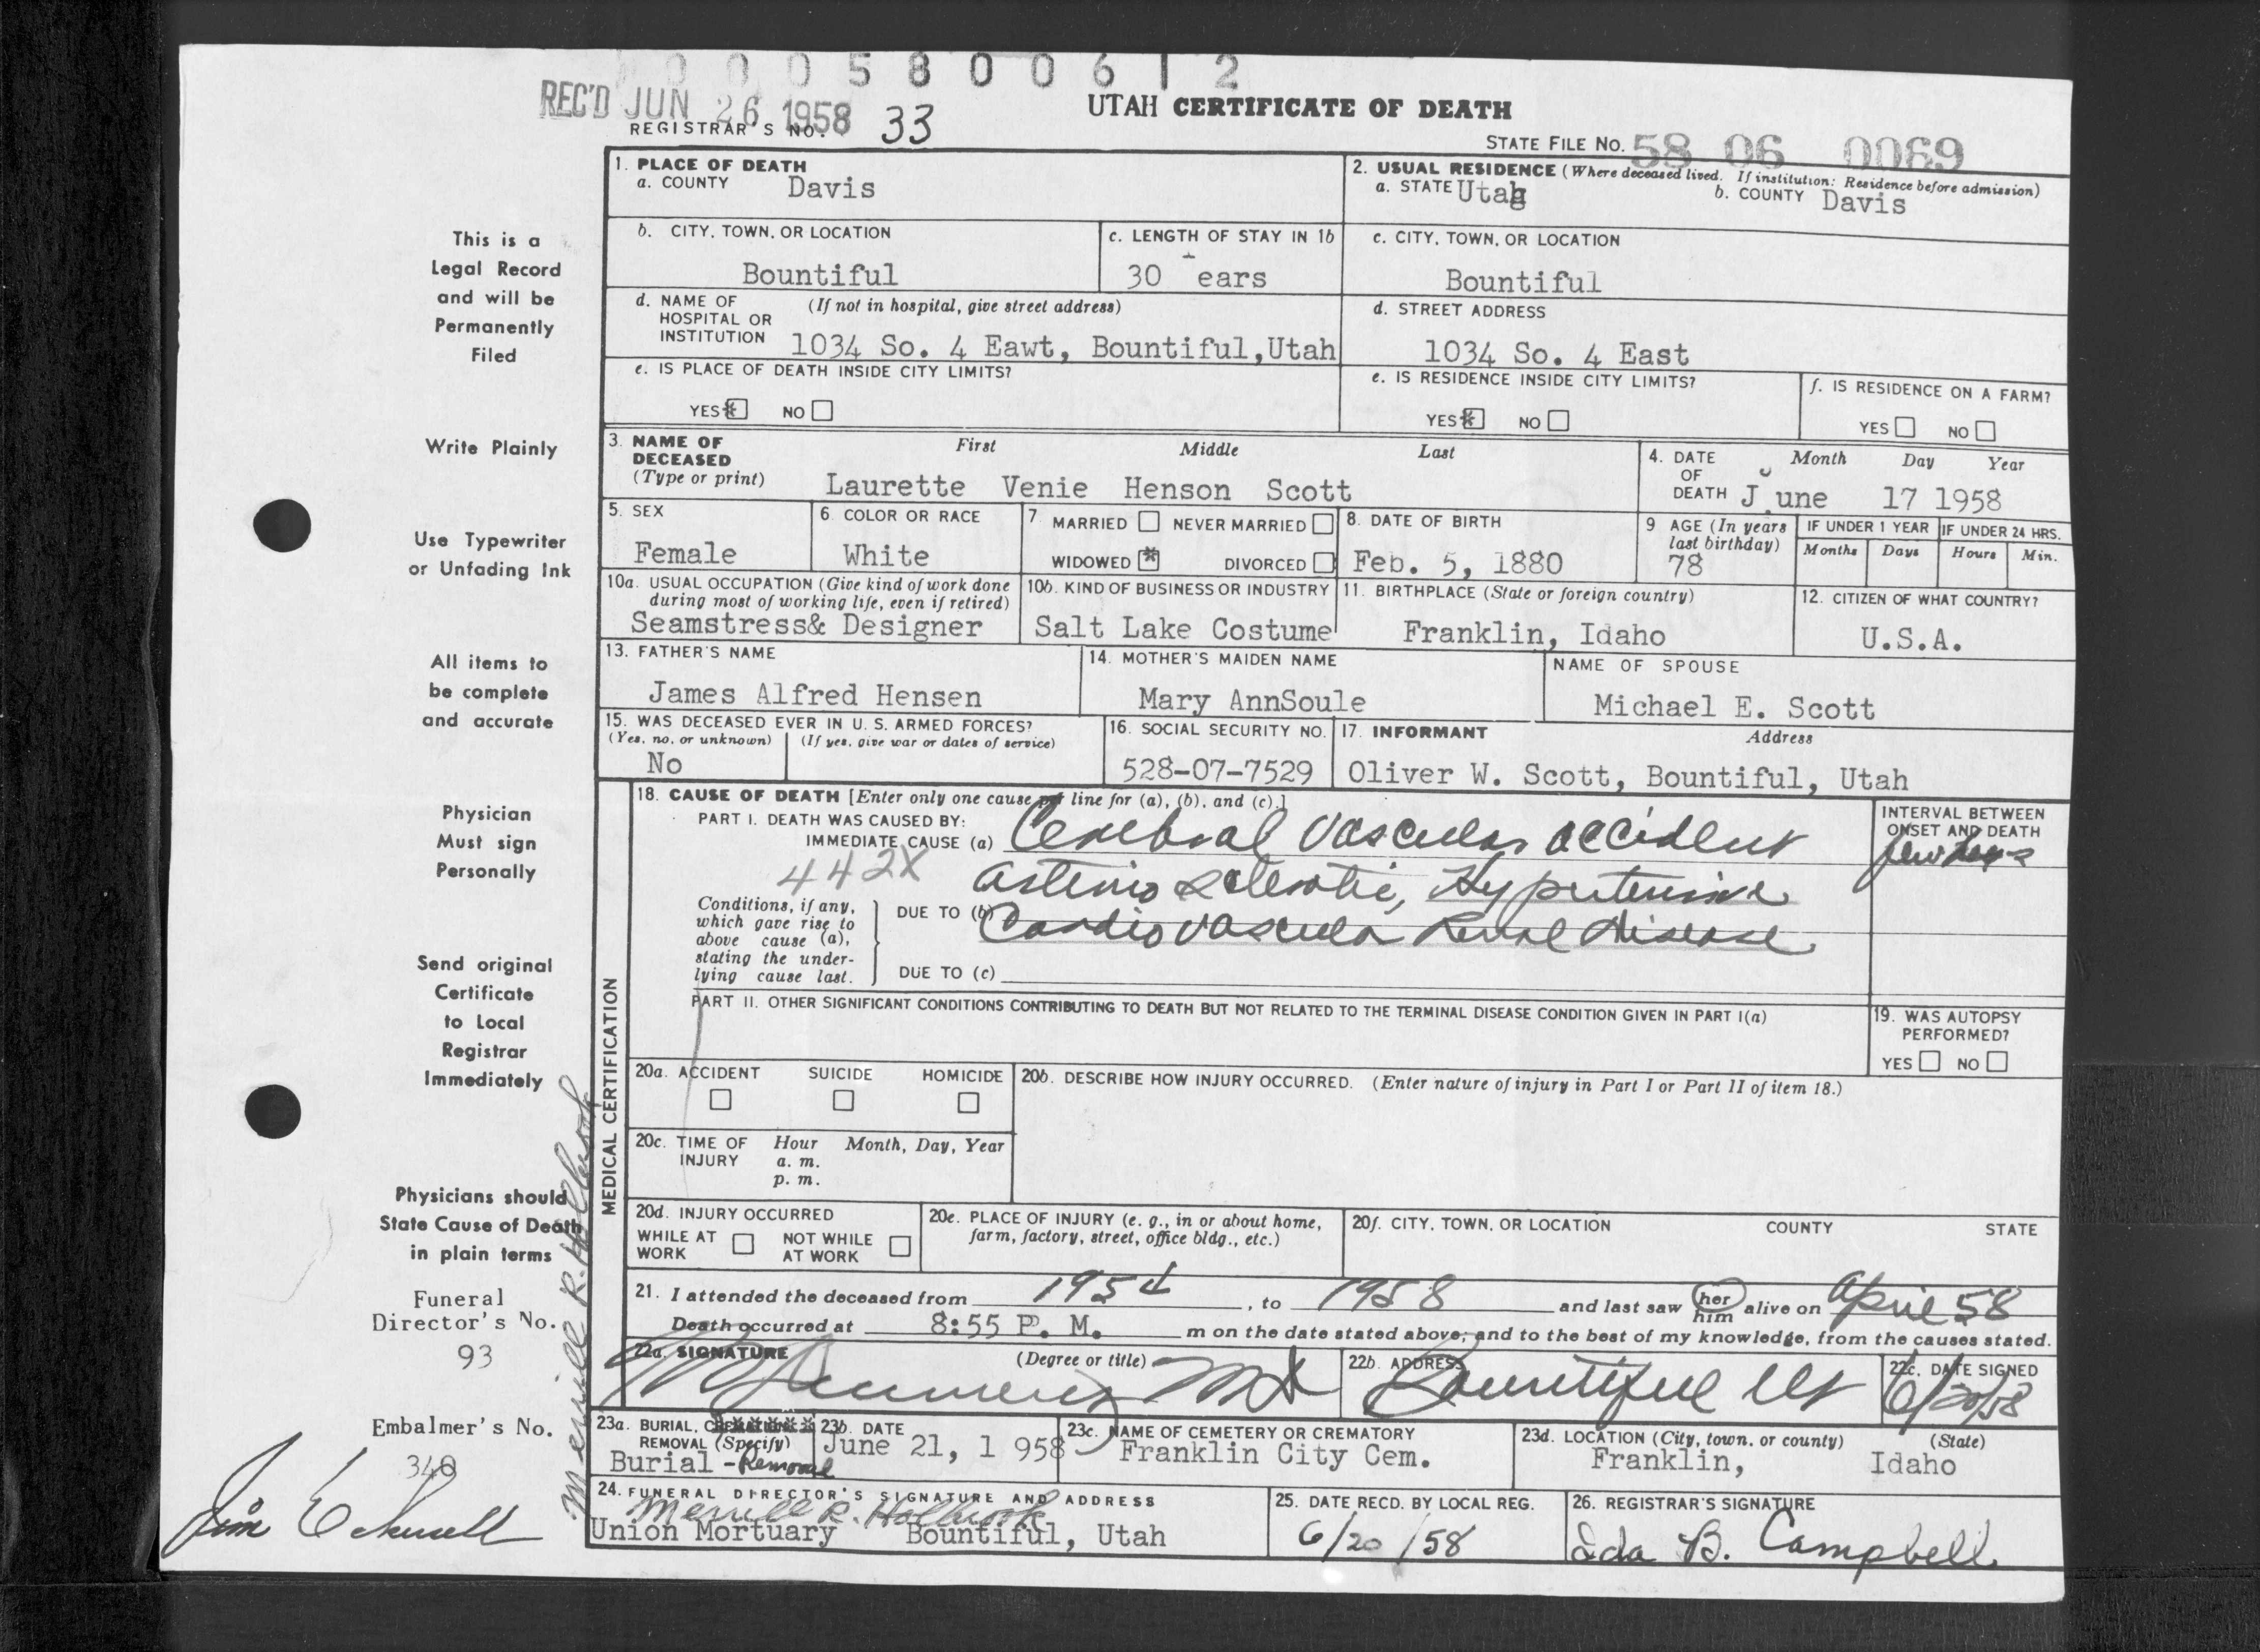 0 0 0 5 8 0 0 6 1 2
REC'D JUN 26 1958
REGISTRAR'S NO. 33
UTAH CERTIFICATE OF DEATH
STATE FILE NO. 58 06 0069
This is a
Legal Record
and will be
Permanently
Filed
Write Plainly
Use Typewriter
or Unfading Ink
All items to
be complete
and accurate
Physician
Must sign
Personally
Send original
Certificate
to Local
Registrar
Immediately
Physicians should
State Cause of Death
in plain terms
Funeral
Director's No.
93
Embalmer's No.
340
Jim
Merrill R. Holbrook
1. PLACE OF DEATH
a. COUNTY Davis
2. USUAL RESIDENCE (Where deceased lived. If institution: Residence before admission)
a. STATE Utah b. COUNTY Davis
b. CITY, TOWN, OR LOCATION
Bountiful
c. LENGTH OF STAY IN 1b
30 ears
c. CITY, TOWN, OR LOCATION
Bountiful
d. NAME OF (If not in hospital, give street address)
HOSPITAL OR
INSTITUTION 1034 So. 4 Eawt, Bountiful,Utah
d. STREET ADDRESS
1034 So. 4 East
e. IS PLACE OF DEATH INSIDE CITY LIMITS?
YES NO
e. IS RESIDENCE INSIDE CITY LIMITS?
YES NO
f. IS RESIDENCE ON A FARM?
YES NO
3. NAME OF First Middle Last
DECEASED
(Type or print) Laurette Venie Henson Scott
4. DATE Month Day Year
OF
DEATH June 17 1958
5. SEX
Female
6. COLOR OR RACE
White
7. MARRIED NEVER MARRIED
WIDOWED DIVORCED
8. DATE OF BIRTH
Feb. 5, 1880
9 AGE (In years
last birthday)
78
IF UNDER 1 YEAR
Months Days
IF UNDER 24 HRS.
Hours Min.
10a. USUAL OCCUPATION (Give kind of work done
during most of working life, even if retired)
Seamstress& Designer
10b. KIND OF BUSINESS OR INDUSTRY
Salt Lake Costume
11. BIRTHPLACE (State or foreign country)
Franklin, Idaho
12. CITIZEN OF WHAT COUNTRY?
U.S.A.
13. FATHER'S NAME
James Alfred Hensen
14. MOTHER'S MAIDEN NAME
Mary AnnSoule
NAME OF SPOUSE
Michael E. Scott
15. WAS DECEASED EVER IN U. S. ARMED FORCES?
(Yes, no, or unknown) (If yes, give war or dates of service)
No
16. SOCIAL SECURITY NO.
528-07-7529
17. INFORMANT Address
Oliver W. Scott, Bountiful, Utah
MEDICAL CERTIFICATION
18. CAUSE OF DEATH [Enter only one cause per line for (a), (b), and (c).]
PART I. DEATH WAS CAUSED BY:
IMMEDIATE CAUSE (a) Cerebral Vascular accident
442X
Conditions, if any,
which gave rise to
above cause (a),
stating the under-
lying cause last.
arterio sclerotic, Hypertensive
DUE TO (b) Cardio vascular Renal disease
DUE TO (c)
INTERVAL BETWEEN
ONSET AND DEATH
few days
PART II. OTHER SIGNIFICANT CONDITIONS CONTRIBUTING TO DEATH BUT NOT RELATED TO THE TERMINAL DISEASE CONDITION GIVEN IN PART I(a)
19. WAS AUTOPSY
PERFORMED?
YES NO
20a. ACCIDENT SUICIDE HOMICIDE
20b. DESCRIBE HOW INJURY OCCURRED. (Enter nature of injury in Part I or Part II of item 18.)
20c. TIME OF Hour Month, Day, Year
INJURY a. m.
p. m.
20d. INJURY OCCURRED
WHILE AT NOT WHILE
WORK AT WORK
20e. PLACE OF INJURY (e. g., in or about home,
farm, factory, street, office bldg., etc.)
20f. CITY, TOWN, OR LOCATION COUNTY STATE
21. I attended the deceased from 1954, to 1958 and last saw her him alive on April 58
Death occurred at 8:55 P. M. m on the date stated above; and to the best of my knowledge, from the causes stated.
22a. SIGNATURE (Degree or title)
MD
22b. ADDRESS
Bountiful Ut
22c. DATE SIGNED
6/20/58
23a. BURIAL, CREMATION,
REMOVAL (Specify)
Burial - Removal
23b. DATE
June 21, 1 958
23c. NAME OF CEMETERY OR CREMATORY
Franklin City Cem.
23d. LOCATION (City, town, or county) (State)
Franklin, Idaho
24. FUNERAL DIRECTOR'S SIGNATURE AND ADDRESS
Merrill R. Holbrook
Union Mortuary Bountiful, Utah
25. DATE RECD. BY LOCAL REG.
6/20/58
26. REGISTRAR'S SIGNATURE
Ida B. Campbell